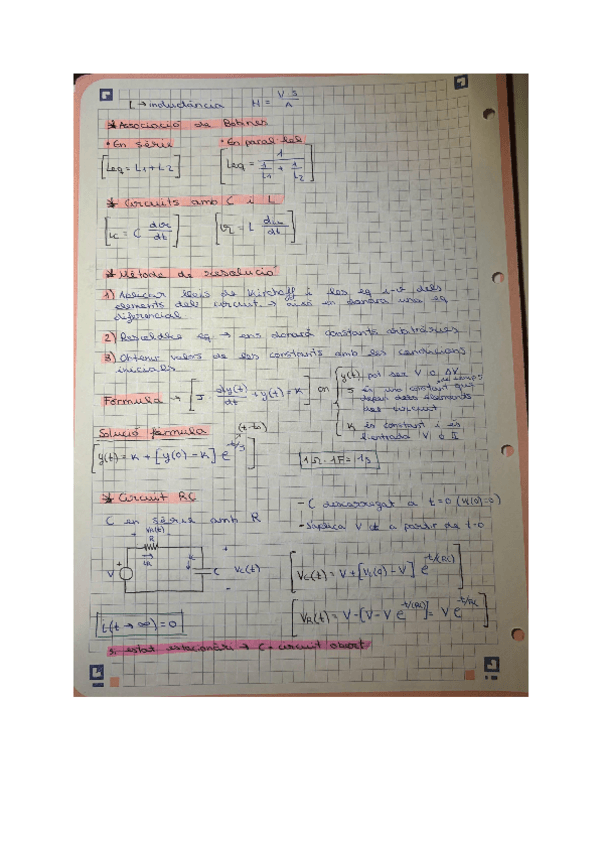 L → inductància   H = V·S / A
* Associació de Bobines
• En sèrie   • En paral·lel
[Leq = L1 + L2]   [Leq = 1 / (1/L1 + 1/L2)]
* Circuits amb C i L
[ic = C dvc/dt]   [VL = L diL/dt]
* Mètode de resolució
1) Aplicar lleis de Kirchoff i les eq i-v dels
elements del circuit → això en donarà una eq
diferencial
2) Resoldre eq → ens donarà constants arbitràries
3) Obtenir valors de les constants amb les condicions
inicials
Fórmula → [J dy(t)/dt + y(t) = K] on { y(t) pot ser V
J és una constant que
depèn dels elements
del circuit
K és constant i és
l'entrada V o I
Solució fórmula   (t-to)
[y(t) = K + [y(0) - K] e^(-t/J)]   1Ω · 1F = 1s
* Circuit RC
- C descarregat a t=0 (Vc(0)=0)
C en sèrie amb R
- S'aplica V a partir de t=0
VR(t)
+ R -
iR
V   C   Vc(t)
[Vc(t) = V + [Vc(0) - V] e^(-t/(RC))]
[VR(t) = V - (V - V e^(-t/(RC))) = V e^(-t/RC)]
i(t → ∞) = 0
estat estacionari → C = circuit obert